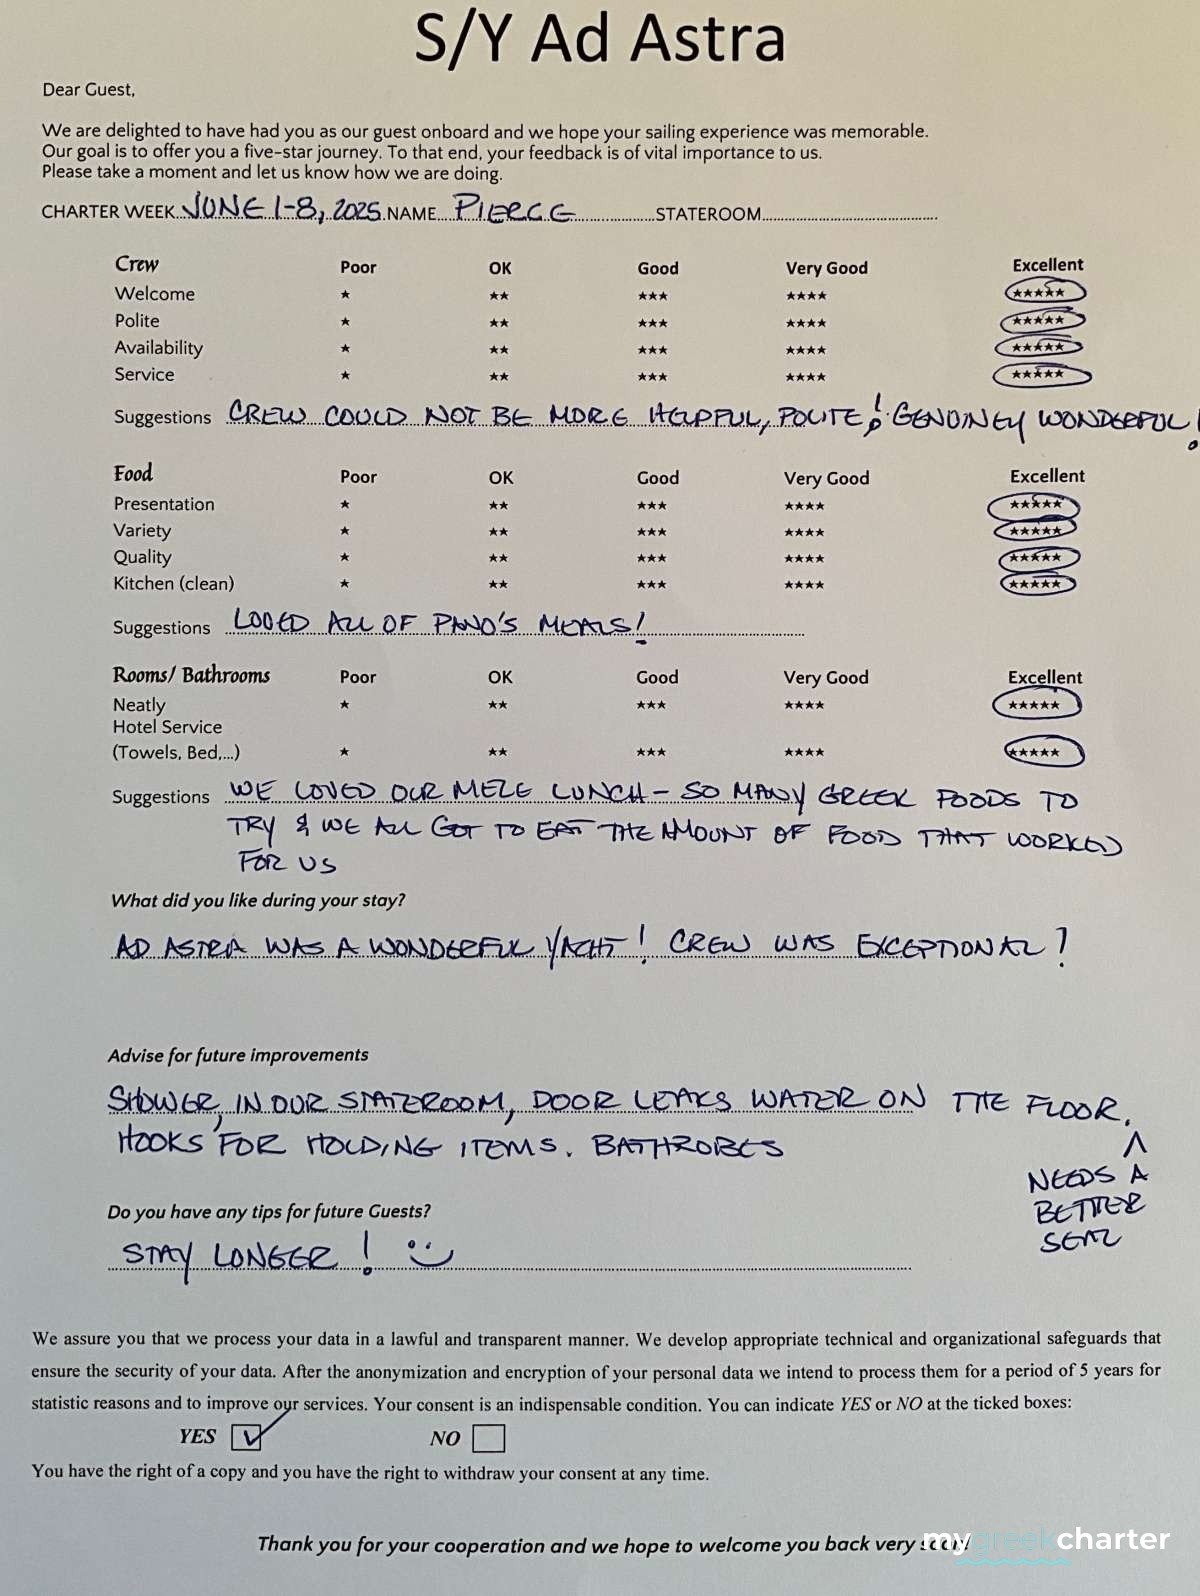 S/Y Ad Astra
Dear Guest,
We are delighted to have had you as our guest onboard and we hope your sailing experience was memorable.
Our goal is to offer you a five-star journey. To that end, your feedback is of vital importance to us.
Please take a moment and let us know how we are doing.
CHARTER WEEK JUNE 1-8, 2025 NAME PIERCE STATEROOM
Crew Poor OK Good Very Good Excellent
Welcome ★ ★★ ★★★ ★★★★ ★★★★★
Polite ★ ★★ ★★★ ★★★★ ★★★★★
Availability ★ ★★ ★★★ ★★★★ ★★★★★
Service ★ ★★ ★★★ ★★★★ ★★★★★
Suggestions CREW COULD NOT BE MORE HELPFUL, POLITE! GENUINEY WONDERFUL!
Food Poor OK Good Very Good Excellent
Presentation ★ ★★ ★★★ ★★★★ ★★★★★
Variety ★ ★★ ★★★ ★★★★ ★★★★★
Quality ★ ★★ ★★★ ★★★★ ★★★★★
Kitchen (clean) ★ ★★ ★★★ ★★★★ ★★★★★
Suggestions LOVED ALL OF PANO'S MEALS!
Rooms/ Bathrooms Poor OK Good Very Good Excellent
Neatly ★ ★★ ★★★ ★★★★ ★★★★★
Hotel Service
(Towels, Bed,...) ★ ★★ ★★★ ★★★★ ★★★★★
Suggestions WE LOVED OUR MEZE LUNCH - SO MANY GREEK FOODS TO
TRY & WE ALL GOT TO EAT THE AMOUNT OF FOOD THAT WORKED
FOR US
What did you like during your stay?
AD ASTRA WAS A WONDERFUL YACHT! CREW WAS EXCEPTIONAL!
Advise for future improvements
SHOWER, IN OUR STATEROOM, DOOR LEAKS WATER ON THE FLOOR.
HOOKS FOR HOLDING ITEMS. BATHROBES
NEEDS A
BETTER
SEAL
Do you have any tips for future Guests?
STAY LONGER!
We assure you that we process your data in a lawful and transparent manner. We develop appropriate technical and organizational safeguards that
ensure the security of your data. After the anonymization and encryption of your personal data we intend to process them for a period of 5 years for
statistic reasons and to improve our services. Your consent is an indispensable condition. You can indicate YES or NO at the ticked boxes:
YES NO
You have the right of a copy and you have the right to withdraw your consent at any time.
Thank you for your cooperation and we hope to welcome you back very
mygreekcharter